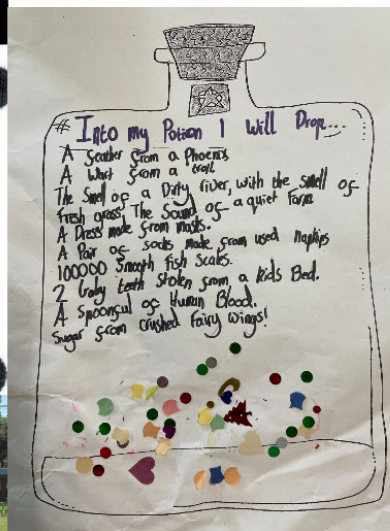 # Into my Potion I Will Drop...
A feather from a Phoenix
A Wart from a troll
The Smell of a Dirty river, with the smell of
fresh grass, The Sound of a quiet Farm
A Dress made from masks.
A Pair of socks made from used Napkins
100000 Smooth fish Scales.
2 baby teeth Stolen from a kids Bed.
A Spoonful of Human Blood.
Sugar from crushed Fairy wings!